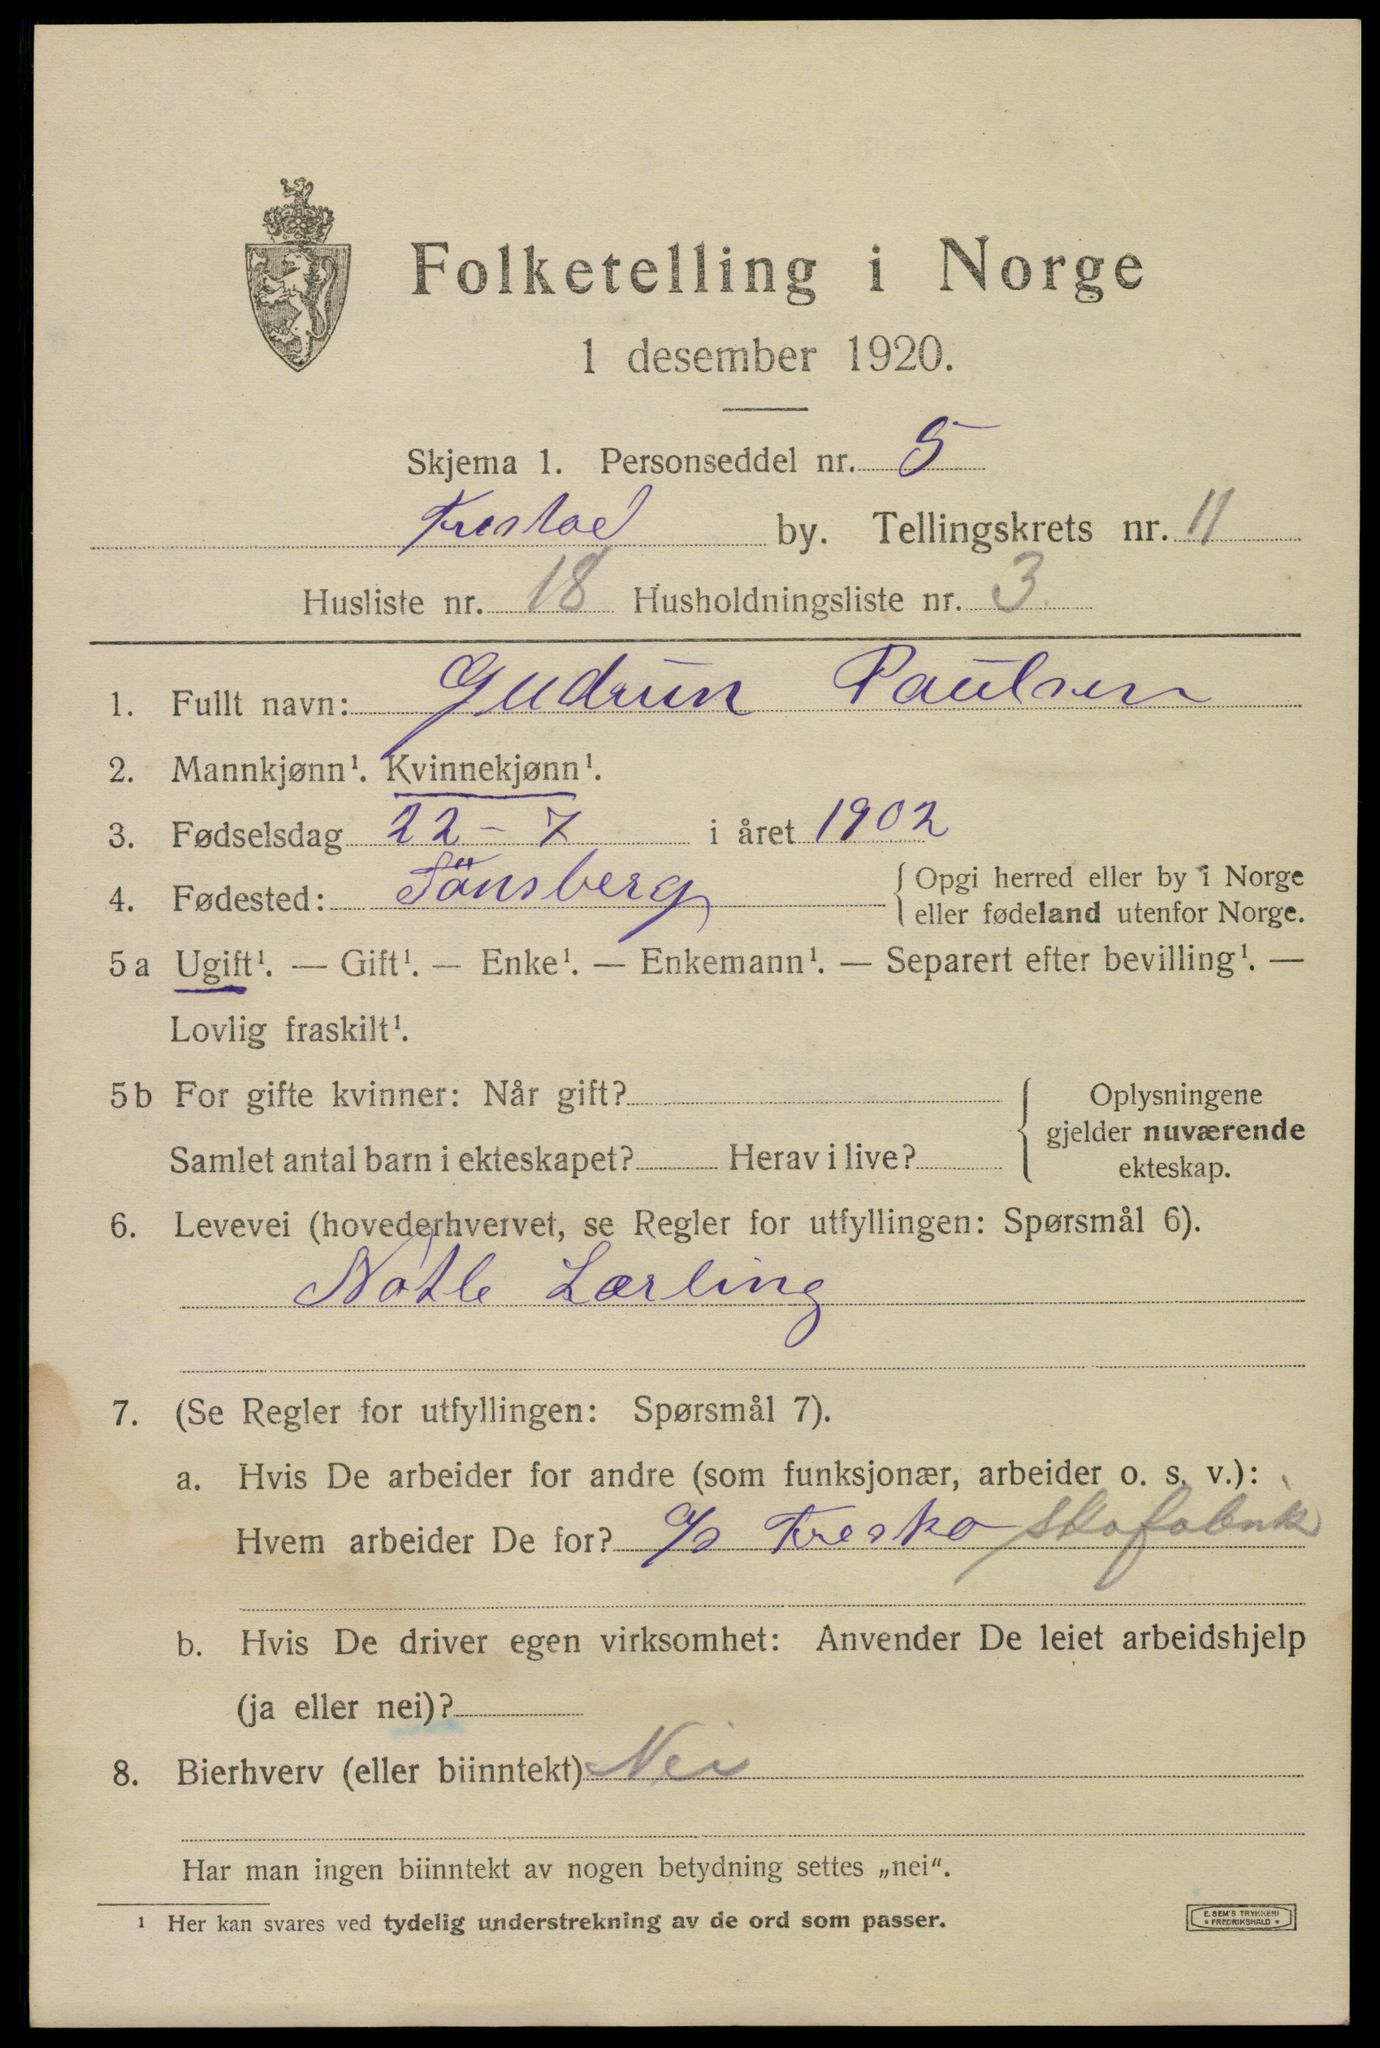 Folketelling i Norge
1 desember 1920.
Skjema 1. Personseddel nr. 5
Frestad by. Tellingskrets nr. 11
Husliste nr. 18 Husholdningsliste nr. 3
1. Fullt navn: Gudrun Paulsen
2. Mannkjønn¹. Kvinnekjønn¹.
3. Fødselsdag 22-7 i året 1902
4. Fødested: Tönsberg { Opgi herred eller by i Norge
eller fødeland utenfor Norge.
5a Ugift¹. — Gift¹. — Enke¹. — Enkemann¹. — Separert efter bevilling¹. —
Lovlig fraskilt¹.
5b For gifte kvinner: Når gift? { Oplysningene
gjelder nuværende
ekteskap.
Samlet antal barn i ekteskapet? Herav i live?
6. Levevei (hovederhvervet, se Regler for utfyllingen: Spørsmål 6).
Lærling
7. (Se Regler for utfyllingen: Spørsmål 7).
a. Hvis De arbeider for andre (som funksjonær, arbeider o. s. v.):
Hvem arbeider De for? A/s Fresko Skofabrik
b. Hvis De driver egen virksomhet: Anvender De leiet arbeidshjelp
(ja eller nei)?
8. Bierhverv (eller biinntekt) Nei
Har man ingen biinntekt av nogen betydning settes „nei“.
¹ Her kan svares ved tydelig understrekning av de ord som passer.
E. SEM'S TRYKKERI
• FREDRIKSHALD •